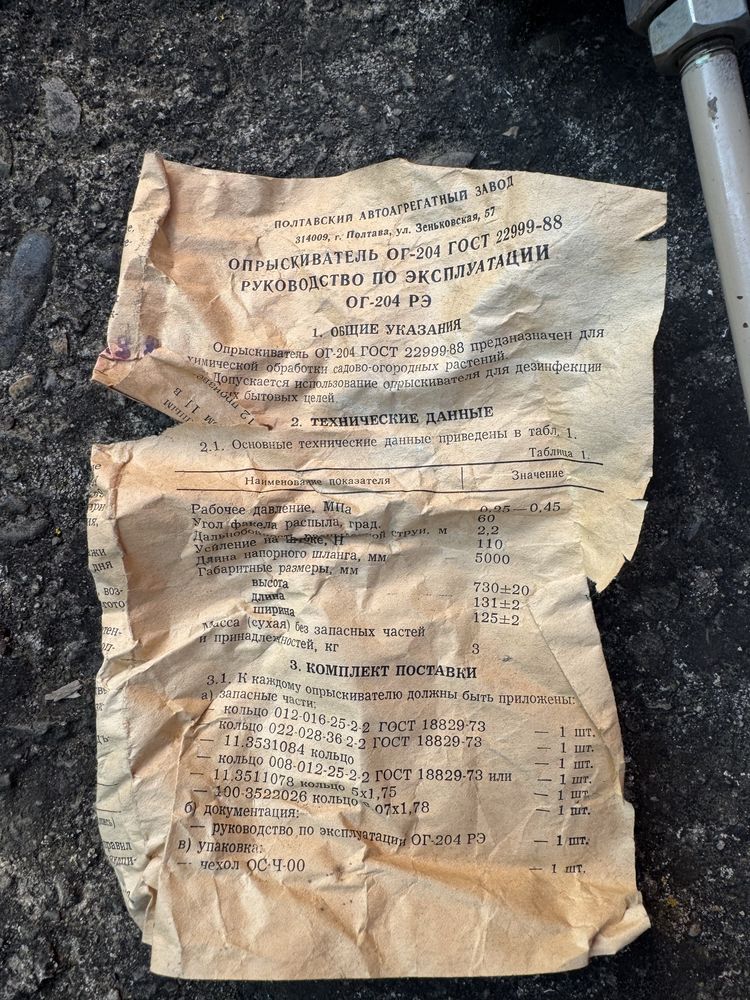 ПОЛТАВСКИЙ АВТОАГРЕГАТНЫЙ ЗАВОД
314009, г. Полтава, ул. Зеньковская, 57
ОПРЫСКИВАТЕЛЬ ОГ-204 ГОСТ 22999-88
РУКОВОДСТВО ПО ЭКСПЛУАТАЦИИ
ОГ-204 РЭ
1. ОБЩИЕ УКАЗАНИЯ
Опрыскиватель ОГ-204 ГОСТ 22999-88 предназначен для
химической обработки садово-огородных растений.
Допускается использование опрыскивателя для дезинфекции
бытовых целей
2. ТЕХНИЧЕСКИЕ ДАННЫЕ
2.1. Основные технические данные приведены в табл. 1.
Таблица 1.
Наименование показателя Значение
Рабочее давление, МПа 0,25—0,45
Угол факела распыла, град. 60
струи, м 2,2
Усиление на Н 110
Длина напорного шланга, мм 5000
Габаритные размеры, мм
высота 730±20
длина 131±2
ширина 125±2
масса (сухая) без запасных частей
и принадлежностей, кг 3
3. КОМПЛЕКТ ПОСТАВКИ
3.1. К каждому опрыскивателю должны быть приложены:
а) запасные части:
кольцо 012-016-25-2-2 ГОСТ 18829-73 — 1 шт.
кольцо 022-028-36-2-2 ГОСТ 18829-73 — 1 шт.
— 11.3531084 кольцо — 1 шт.
— кольцо 008-012-25-2-2 ГОСТ 18829-73 или — 1 шт.
— 11.3511078 кольцо 5х1,75 — 1 шт.
— 100-3522026 кольцо 07х1,78 — 1 шт.
б) документация:
— руководство по эксплуатации ОГ-204 РЭ — 1 шт.
в) упаковка:
— чехол ОС-Ч-00 — 1 шт.